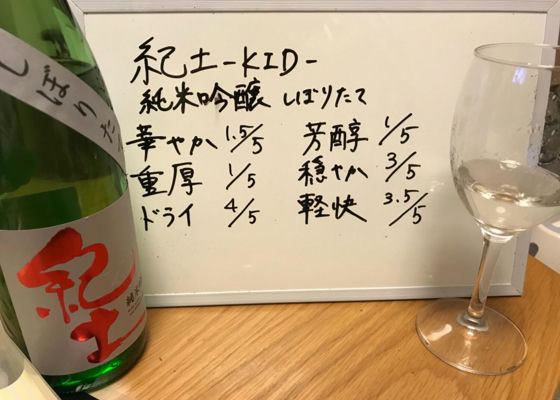 紀土-KID-
純米吟醸 しぼりたて
華やか 1.5/5 芳醇 1/5
重厚 1/5 穏やか 3/5
ドライ 4/5 軽快 3.5/5
しぼりた
紀土
純米